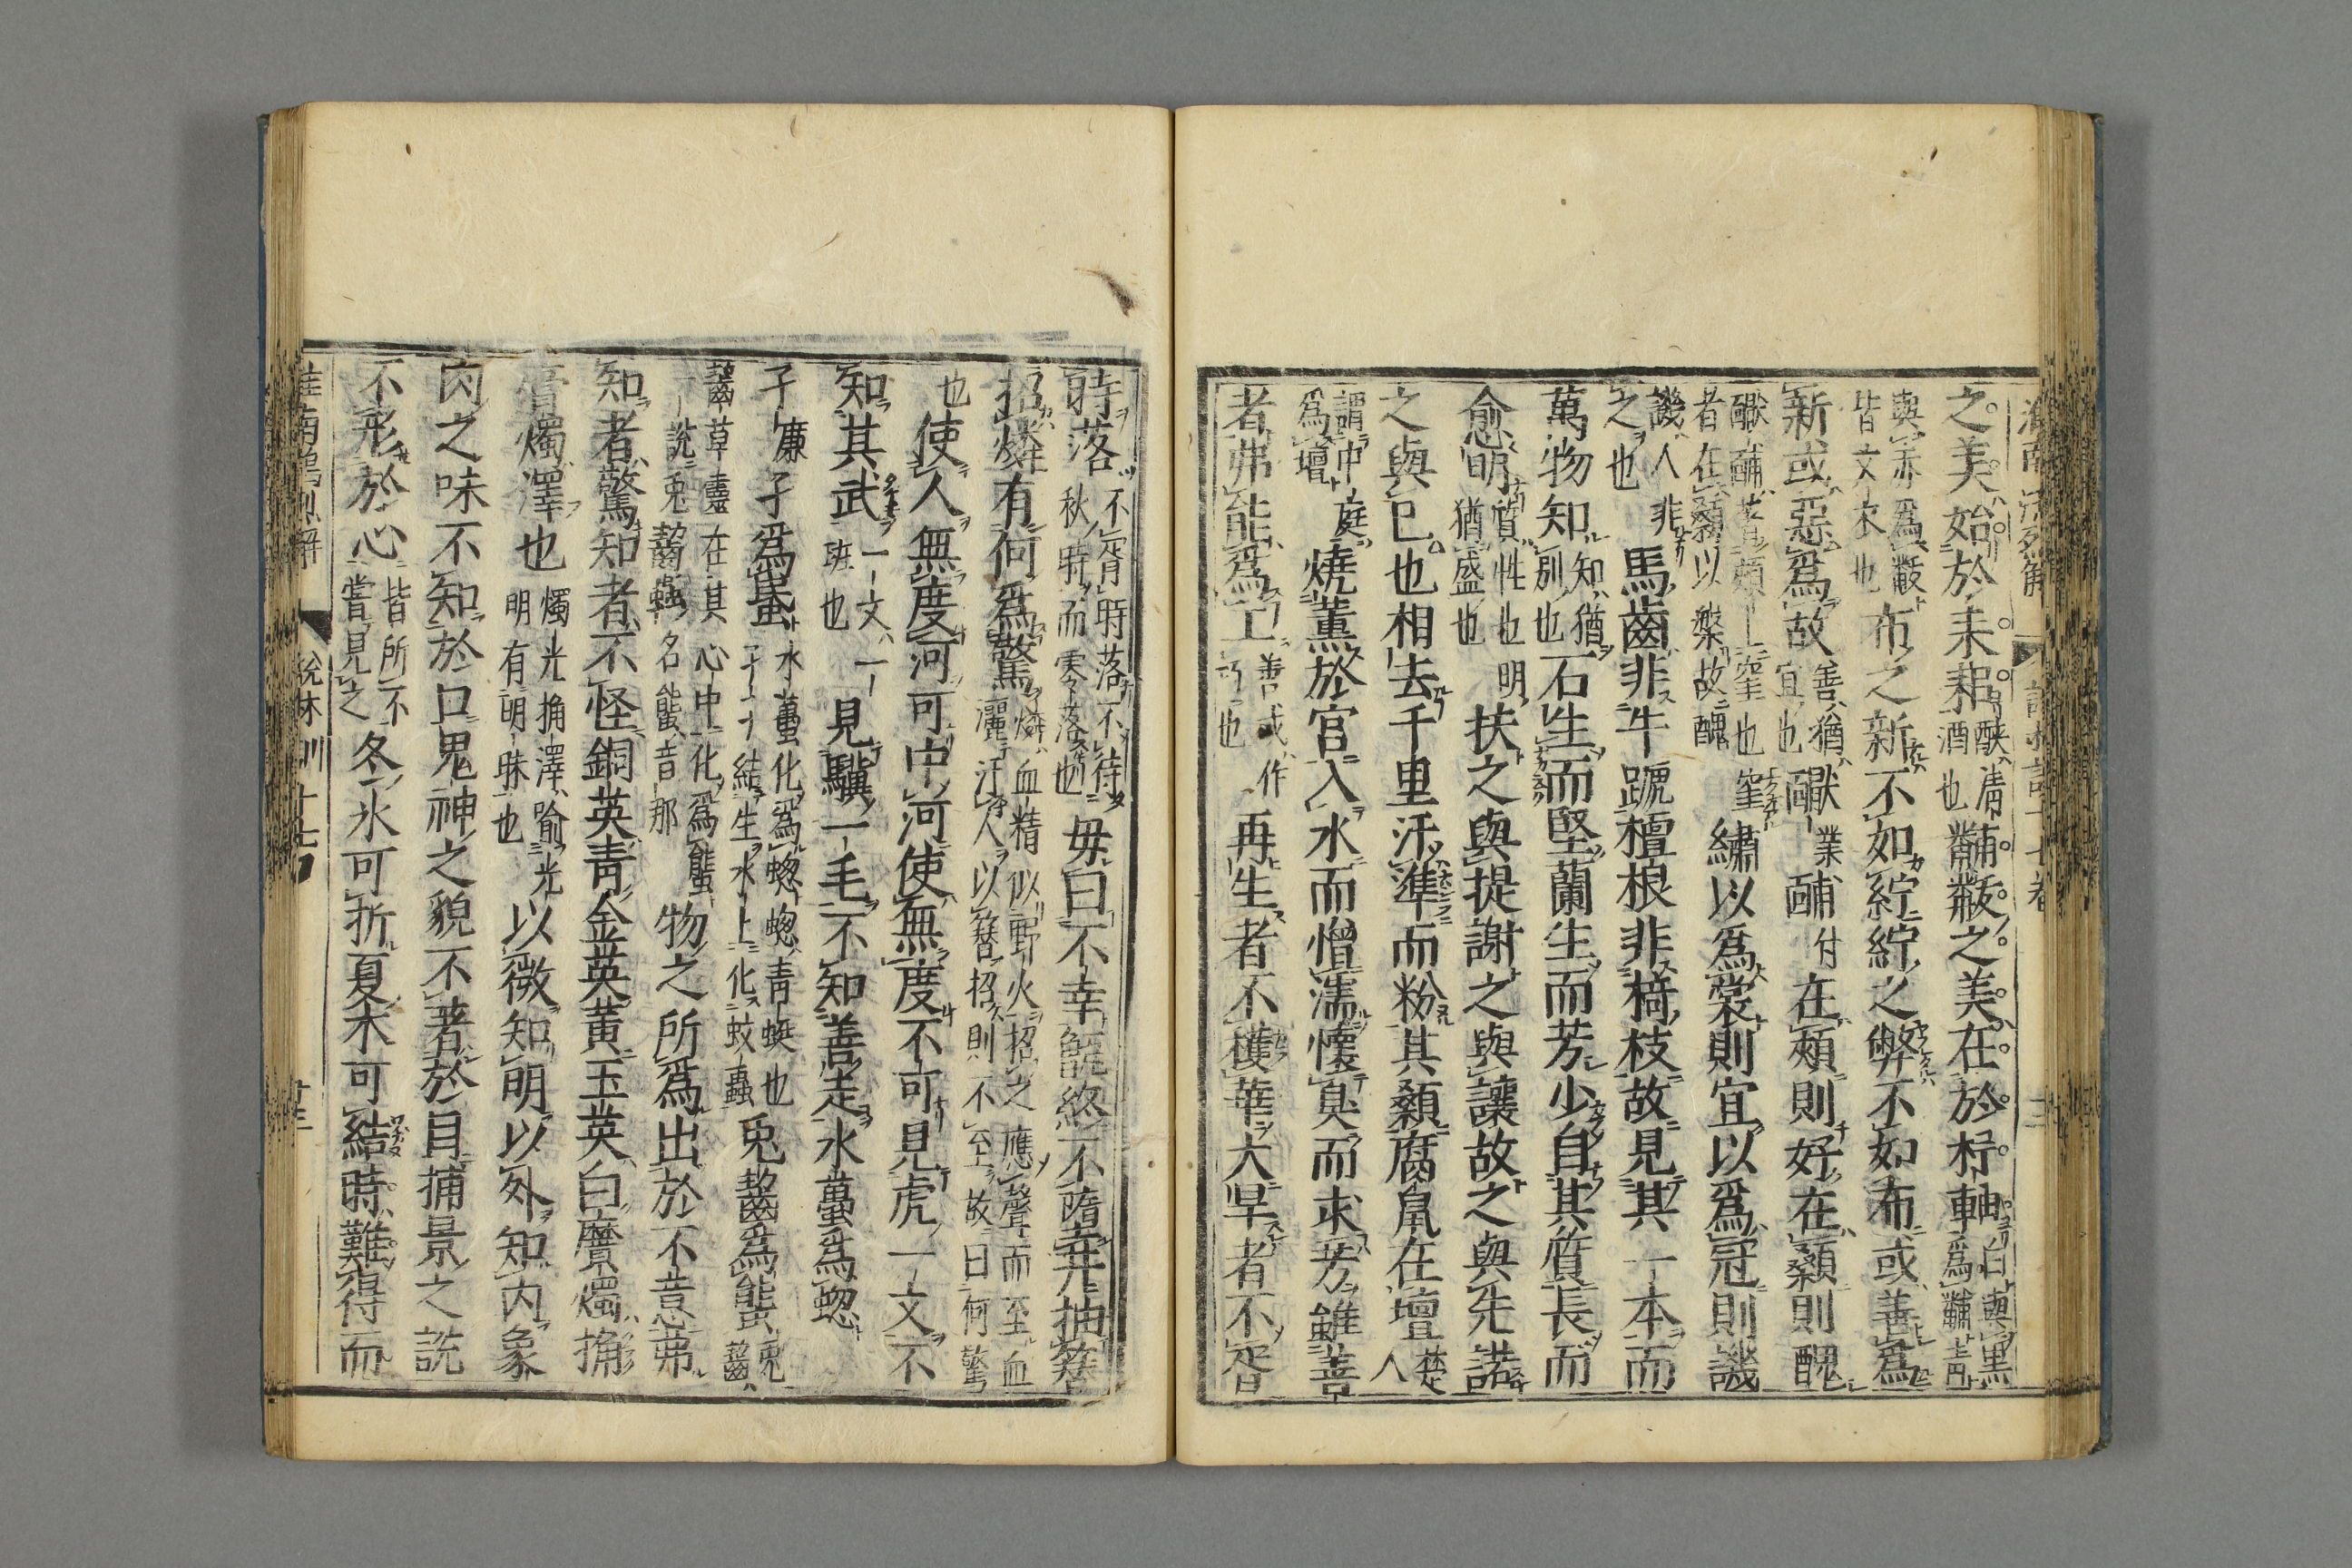 之美始於耒耜醙清酒也黼黻之美在於杼軸白與黑爲黼青
與赤爲黻皆文衣也布之新不如紵紵之弊不如布或善爲
新或惡爲故善猶宜也𪙊䩉在頰則好在顙則醜
䩉者頰上窐也窐者在顙以槃故醜繡以爲裳則宜以爲冠則譏
譏人非之也馬齒非牛蹏檀根非椅枝故見其一本而
萬物知知猶別也石生而堅蘭生而芳少自其質長而
愈明質性也明猶盛也扶之與提謝之與讓故之與先諾
之與已也相去千里汙準而粉其顙腐鼠在壇楚人
謂中庭爲壇燒薰於宮入水而憎濡懷臭而求芳雖善
者弗能爲工善或作巧也再生者不穫華大旱者不胥
時落不胥時落不待秋時而零落也毋曰不幸甑終不墮井抽簪
招燐有何爲驚燐血精似野火招之應聲而至血灑汙人以簪招則不至故曰何驚
也使人無度河可中河使無度不可見虎一文不
知其武一文一班也見驥一毛不知善走水蠆爲蟌
孑孑爲蟁水蠆化爲蟌蟌青蜓也孑孑結生水上化蚊蟲兎齧爲螚兎齧
齧草靈在其心中化爲螚一說兎齧蟲名螚音那物之所爲出於不意弗
知者驚知者不怪銅英青金英黄玉英白黂燭捔
膏燭澤也燭光捔澤喻光明有明昧也以微知明以外知内象
肉之味不知於口鬼神之貌不著於目捕景之説
不形於心皆所不嘗見之冬氷可折夏木可結時難得而
説林訓十七